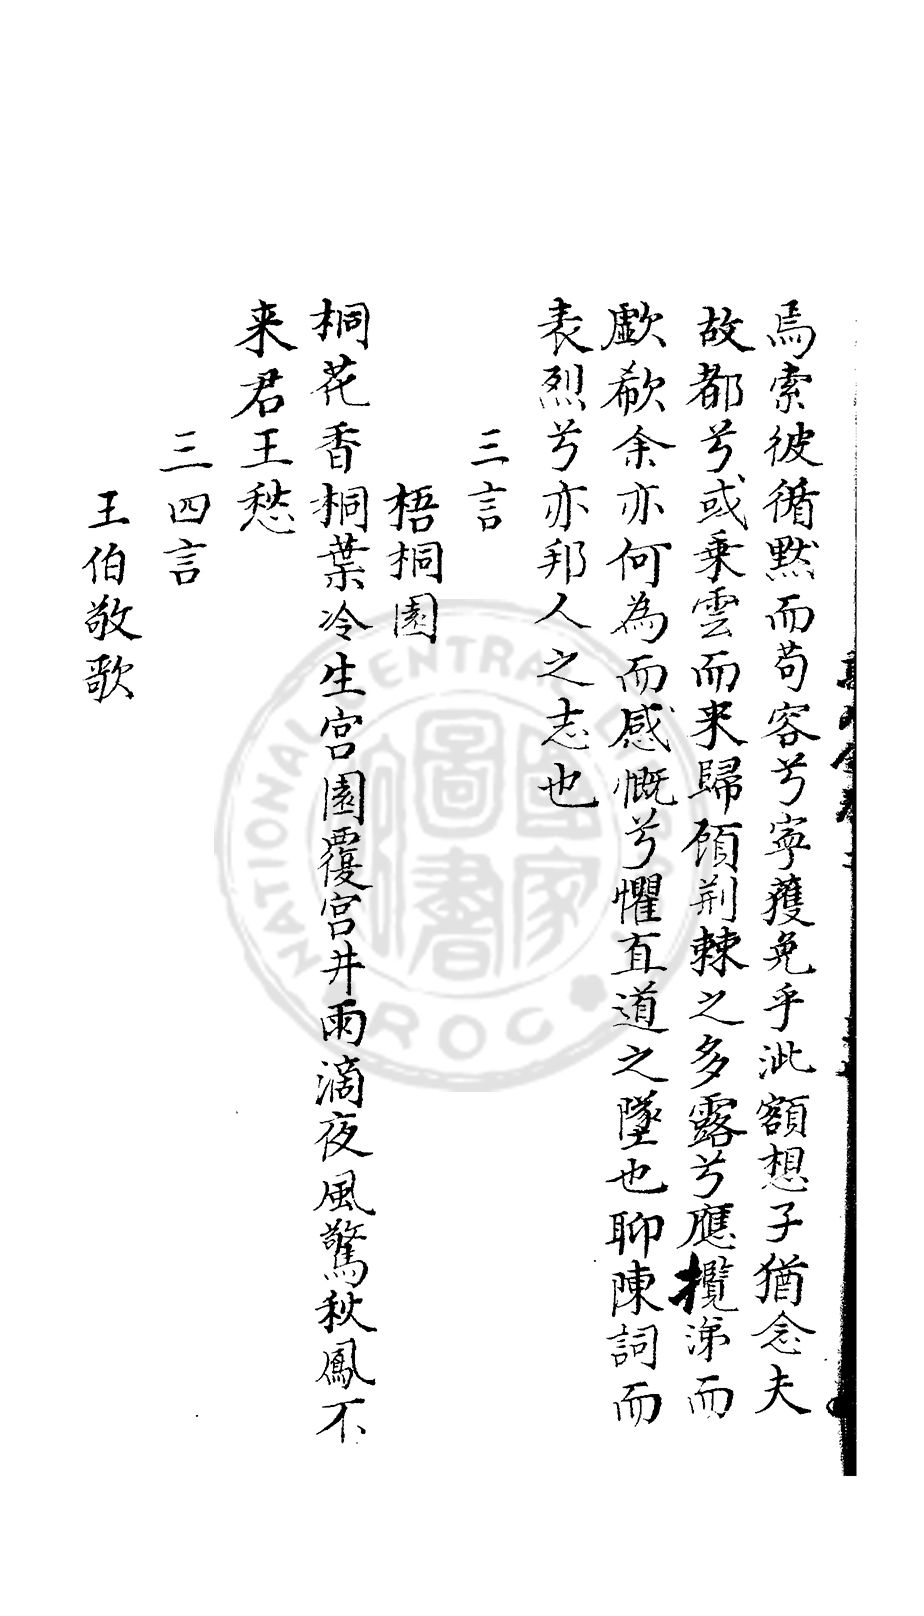 焉索彼循黙而苟容兮寧獲免乎泚額想子猶念夫
故都兮或乗雲而来歸顧荆棘之多露兮應攬涕而
歔欷余亦何為而感慨兮懼直道之墜也聊陳詞而
表烈兮亦邦人之志也
三言
梧桐園
桐花香桐葉冷生宫園覆宫井雨滴夜風驚秋鳳不
来君王愁
三四言
王伯敬歌
國家圖書
NATIONAL CENTRAL
ROC